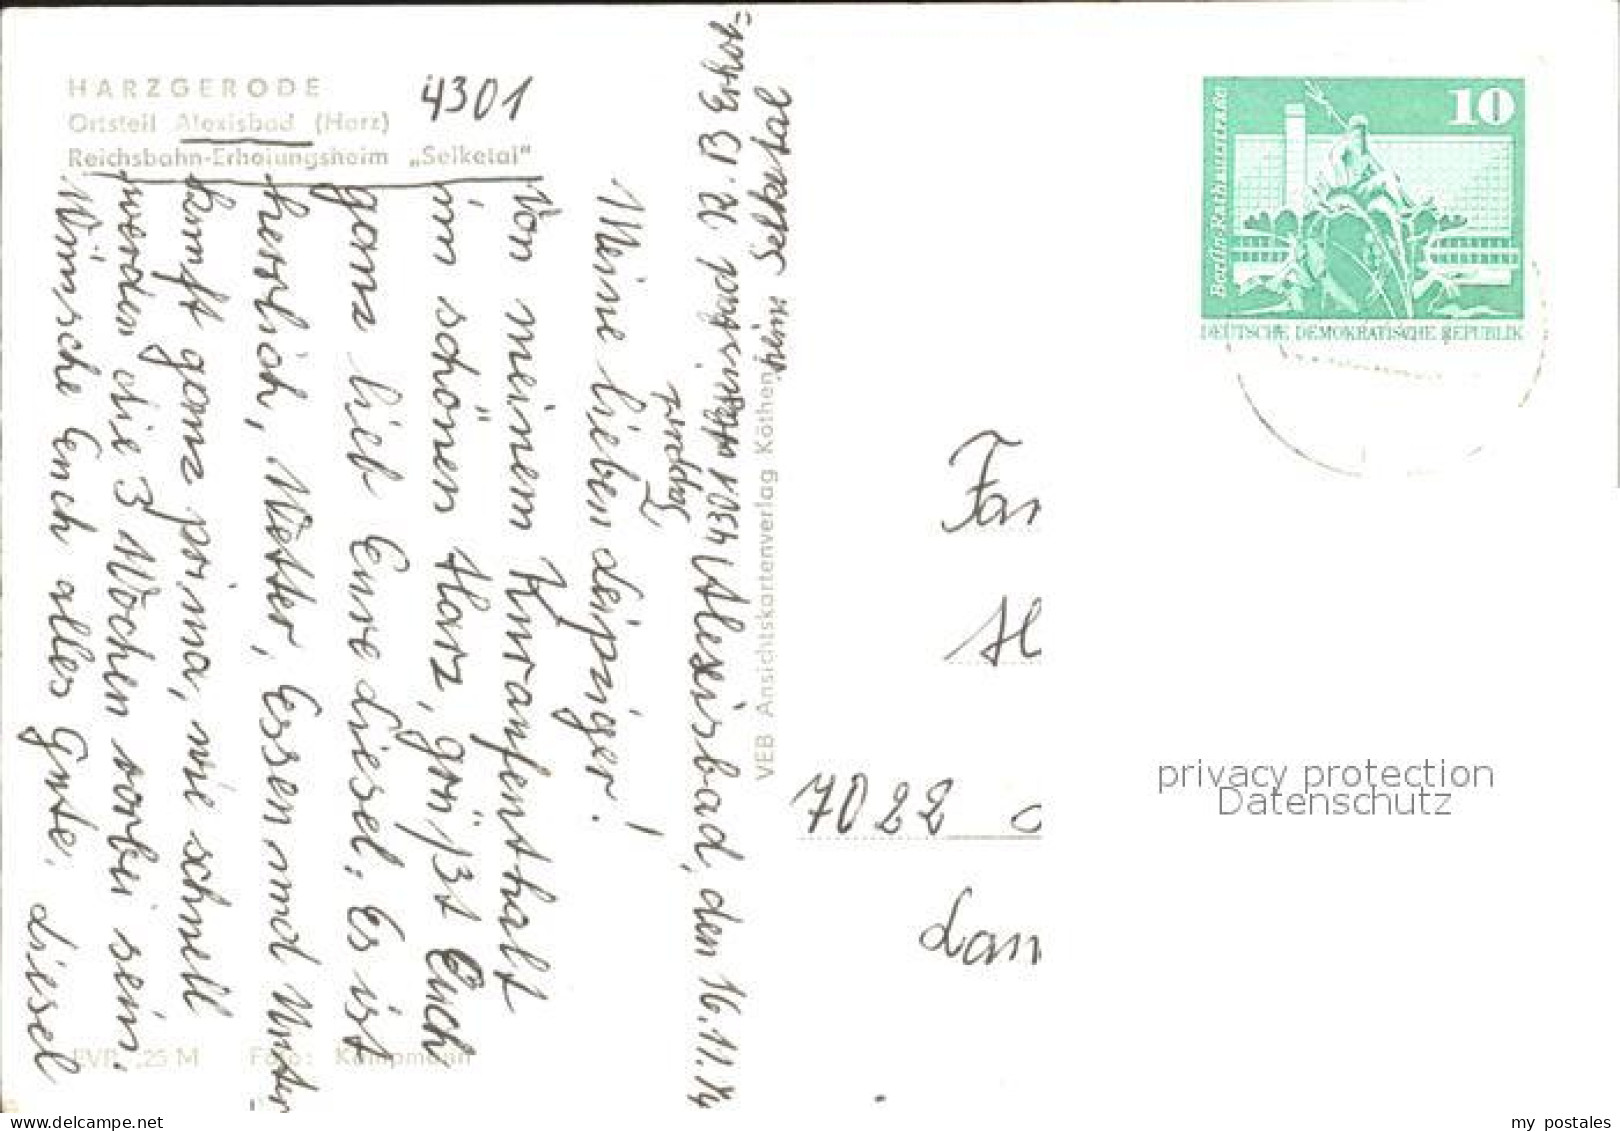 HARZGERODE
Ortsteil Alexisbad (Harz)
Reichsbahn-Erholungsheim „Selketal"
4301
4301 Alexisbad, den 16.11.74
heim Selketal
Meine lieben Leipziger!
Von meinem Kuraufenthalt
im schönen Harz, grüßt Euch
ganz lieb Eure Liesel. Es ist
herrlich, Wetter, Essen und Unter
kunft ganz prima, wie schnell
werden die 3 Wochen vorbei sein.
Wünsche Euch alles Gute. Liesel
EVP ,25 M Foto: Kampmann
VEB Ansichtskartenverlag Köthen
10
Berlin-Rathausstraße
DEUTSCHE DEMOKRATISCHE REPUBLIK
Fam
7022
privacy protection
Datenschutz
my postales